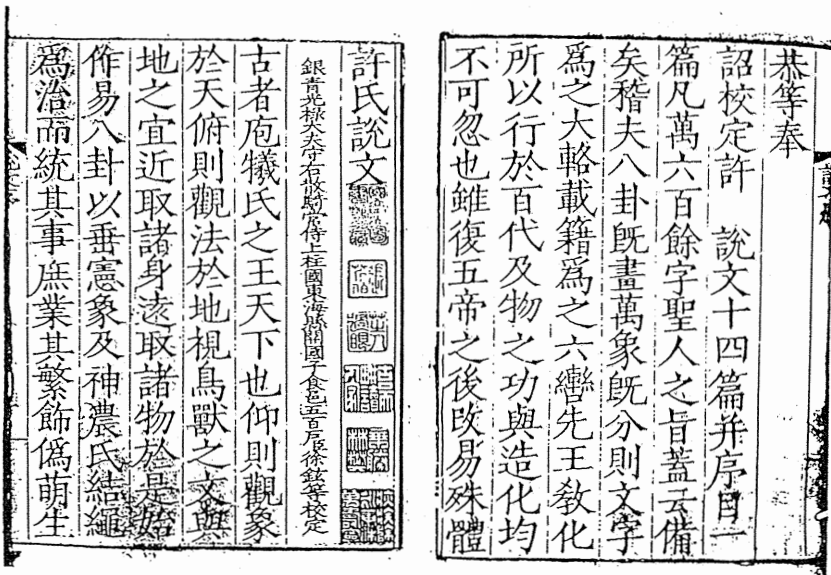 恭等奉
詔校定許　說文十四篇并序目一
篇凡萬六百餘字聖人之旨蓋云備
矣稽夫八卦旣畫萬象旣分則文字
爲之大輅載籍爲之六轡先王教化
所以行於百代及物之功與造化均
不可忽也雖復五帝之後改易殊體
許氏說文
銀青光祿大夫守右散騎常侍上柱國東海縣開國子食邑五百戶臣徐鉉等校定
古者庖犧氏之王天下也仰則觀象
於天俯則觀法於地視鳥獸之文與
地之宜近取諸身遠取諸物於是始
作易八卦以垂憲象及神農氏結繩
爲治而統其事庶業其繁飾偽萌生